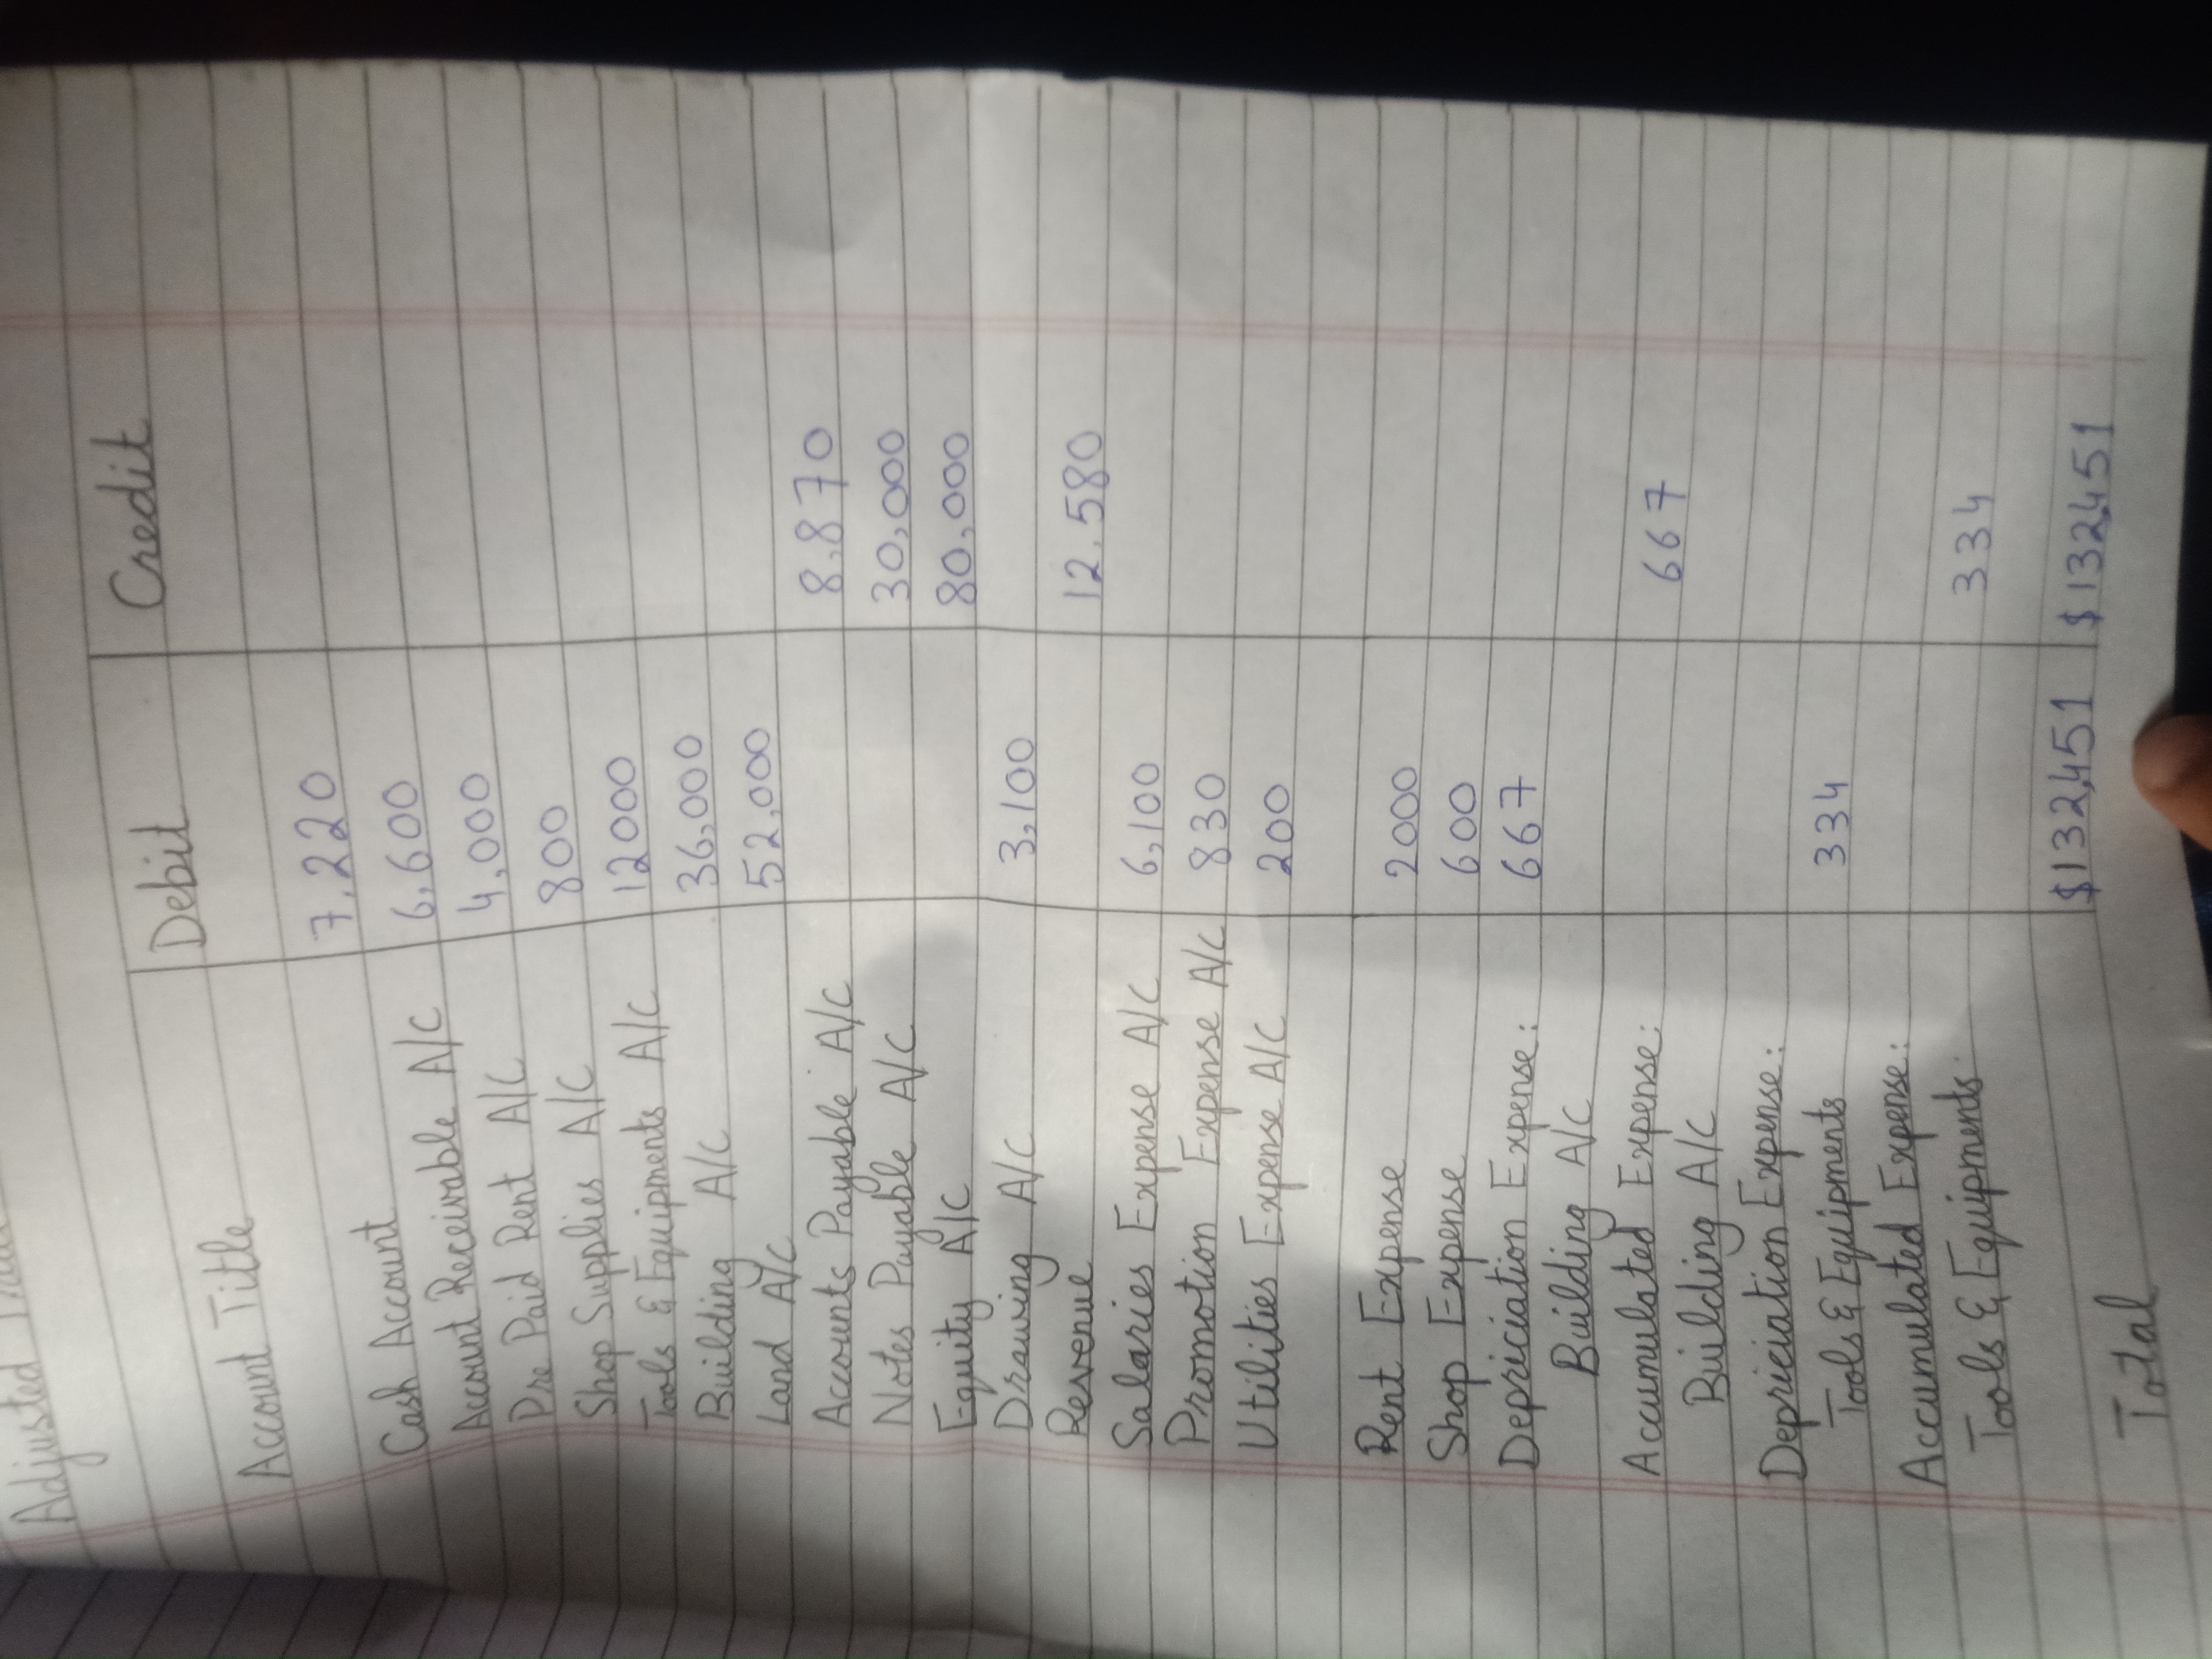 Adjusted
Account Title Debit Credit
Cash Account 7,220
Account Receivable A/C 6,600
Pre Paid Rent A/C 4,000
Shop Supplies A/C 800
Tools & Equipments A/C 12000
Building A/C 36,000
Land A/C 52,000
Accounts Payable A/C 8,870
Notes Payable A/C 30,000
Equity A/C 80,000
Drawing A/C 3,100
Revenue 12.580
Salaries Expense A/C 6,100
Promotion Expense A/C 830
Utilities Expense A/C 200
Rent Expense 2000
Shop Expense 600
Depriciation Expense: 667
Building A/C
Accumulated Expense: 667
Building A/C
Depriciation Expense:
Tools & Equipments 334
Accumulated Expense:
Tools & Equipments 334
Total $132,451 $132,451